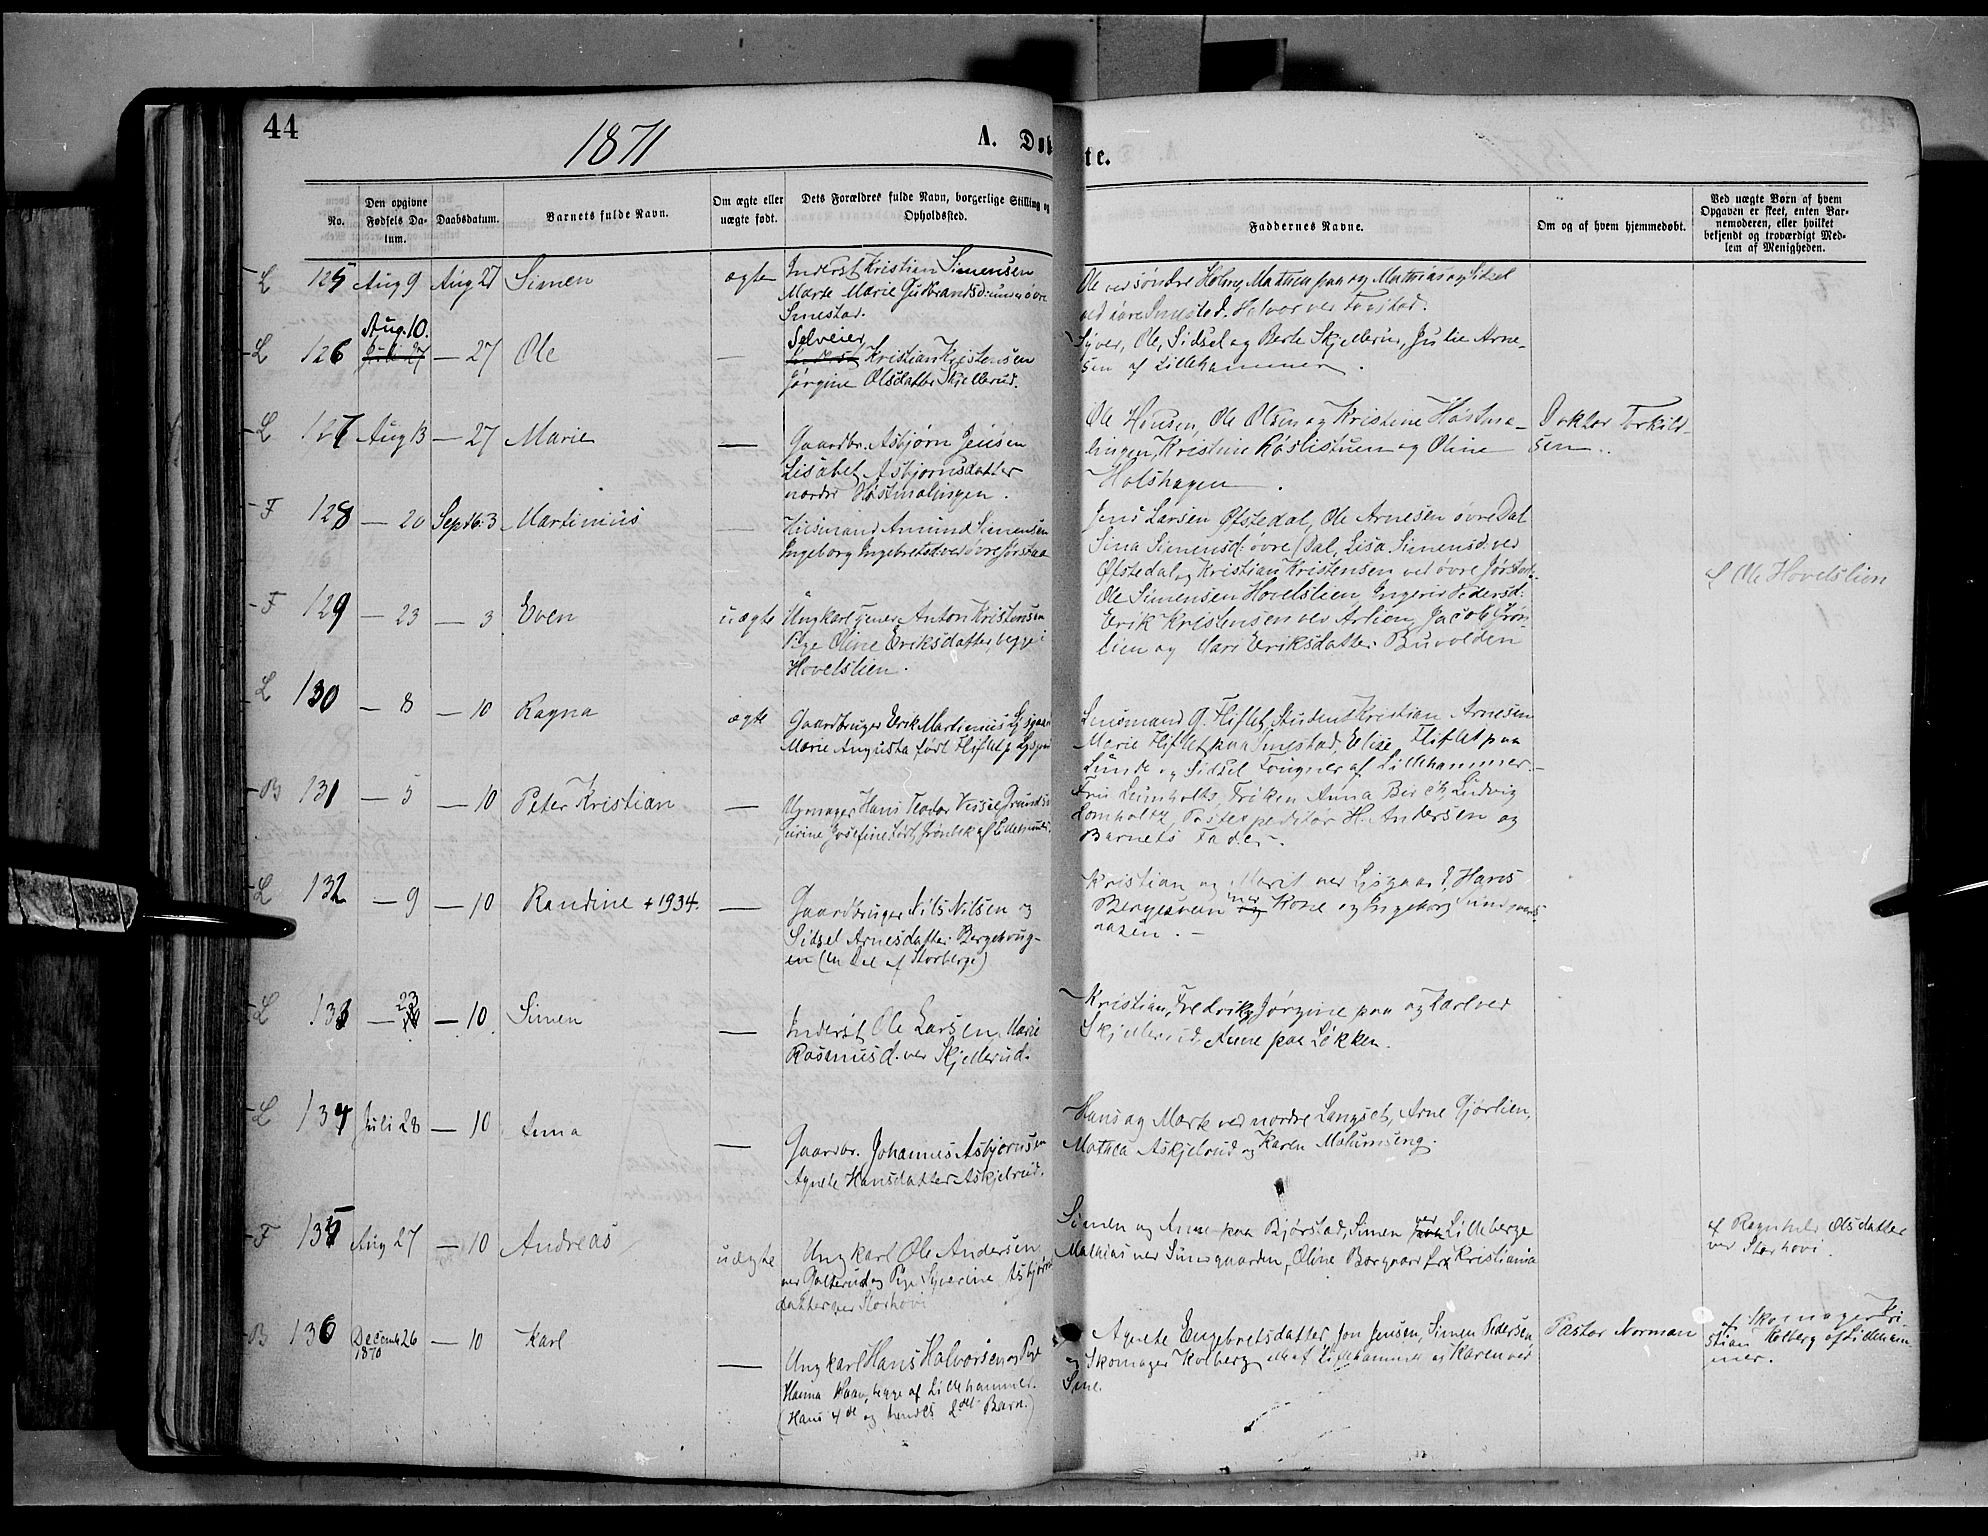 44
1871
A. Døbte.
No.
Den opgivne Fødsels Datum.
Daabsdatum.
Barnets fulde Navn.
Om ægte eller uægte født.
Dets Forældres fulde Navn, borgerlige Stilling og Opholdssted.
Faddernes Navne.
Om og af hvem hjemmedøbt.
Ved uægte Børn af hvem Opgaven er skeet, enten Barnemoderen, eller hvilket bekjendt og troværdigt Medlem af Menigheden.
L 125 Aug 9 Aug 27 Simen ægte
Inderst Kristian Simensen
Marte Marie Gudbrandsd: under øvre
Smestad.
Ole ved søndre Holme, Mathea paa og Mathias og Sidsel
ved øvre Smestad. Halvor ved
L 126 Aug. 10. Juli 27 — 27 Ole —
Selveier
Kristian Kristensen
Jørgine Olsdatter Skjellerud.
Syver, Ole, Sidsel og Berte Skjellerud, Julie Arne-
sen af Lillehammer.
L 127 Aug 13 — 27 Marie —
Gaardbr. Asbjørn Jensen
Lisabet Asbjørnsdatter
nordre Høstmælingen.
Ole Hansen, Ole Olsen og Kristine Høstmæ-
lingen, Kristine Roslistuen og Oline
Holshagen.
Doktor Torkild-
sen.
F 128 — 20 Septb: 3 Martinius —
Husmand Amund Simensen
Ingeborg Ingebretsd ved øvre Jørstad
Jens Larsen Øfstedal, Ole Arnesen øvre Dal
Sina Simensd: øvre Dal, Lisa Simensd: ved
Øfstedal og Kristian Kristensen ved øvre Jørstad.
F 129 — 23 — 3 Even uægte
Ungkarl Anton Kristensen
Pige Oline Eriksdatter, begge i
Hovelslien.
Ole Simensen Hovelslien Ingerid Pedersd:
Erik Kristensen ved Arlien, Jacob Grøn-
lien og Mari Eriksdatter Buvolden
af Ole Hovelslien
L 130 — 8 — 10 Ragna ægte
Gaardbruger Erik Martinius Lysgaard
Marie Augusta født Fliflet, Lysgaard
Lensmand G. Fliflet, Student Kristian Arnesen
Marie Fliflet paa Smestad, Elise Fliflet paa
Lunde og Sidsel Fougner af Lillehammer.
B 131 — 5 — 10 Peter Kristian —
Urmager Hans Teodor Grundsen
Josefine født af Lillehammer.
Fru Lumholtz, Frøken Anna Birch, Ludvig
Lomholtz, Postexpeditør H. Andersen og
Barnets Fader.
L 132 — 9 — 10 Randine + 1934. —
Gaardbruger Nils Nilsen og
Sidsel Arnesdatter Bergehaug-
en (en Del af Storberge)
Kristian og Marit ved Lysgaard, Hans
Bergesveen og Kone og Ingeborg
L 133 — 23 — 10. Simen —
Inderst Ole Larsen, Marie
Rasmusd. ved Skjellerud.
Kristian, Fredrik, Jørgine paa og Karl ved
Skjellerud, Anne paa Løkken.
L 134 Juli 28 — 10 Anna —
Gaardbr. Johannes Asbjørnsen
Agnete Hansdatter Askjelrud.
Hans og Marte ved nordre Langset, Arne Gjørlien,
Mathea Askjelrud og Karen Melumseng.
F 135 Aug 27 — 10 Andreas uægte
Ungkarl Ole Andersen
ved Galterud og Pige Syverine Asbjørns-
datter ved Storhovi
Simen og Anne paa Bjørstad, Simen ved Lilleberge
Mathias ved Simesgaarden, Oline Borgaard fra Kristiania
af Ragnhild Olsdatter
ved Storhovi.
B 136 Decemb 26 1870 — 10 Karl —
Ungkarl Hans Halvorsen og Pige
Hanna begge af Lillehammer.
(Hans 4de og hendes 2det Barn.)
Agnete Engebretsdatter, Jon Jensen, Simen Pedersen
og Skomager Kolberg, alle af Lillehammer og Karen ved
Sme
Pastor Norman
af Skomager Kri-
stian Kolberg af Lilleham-
mer.